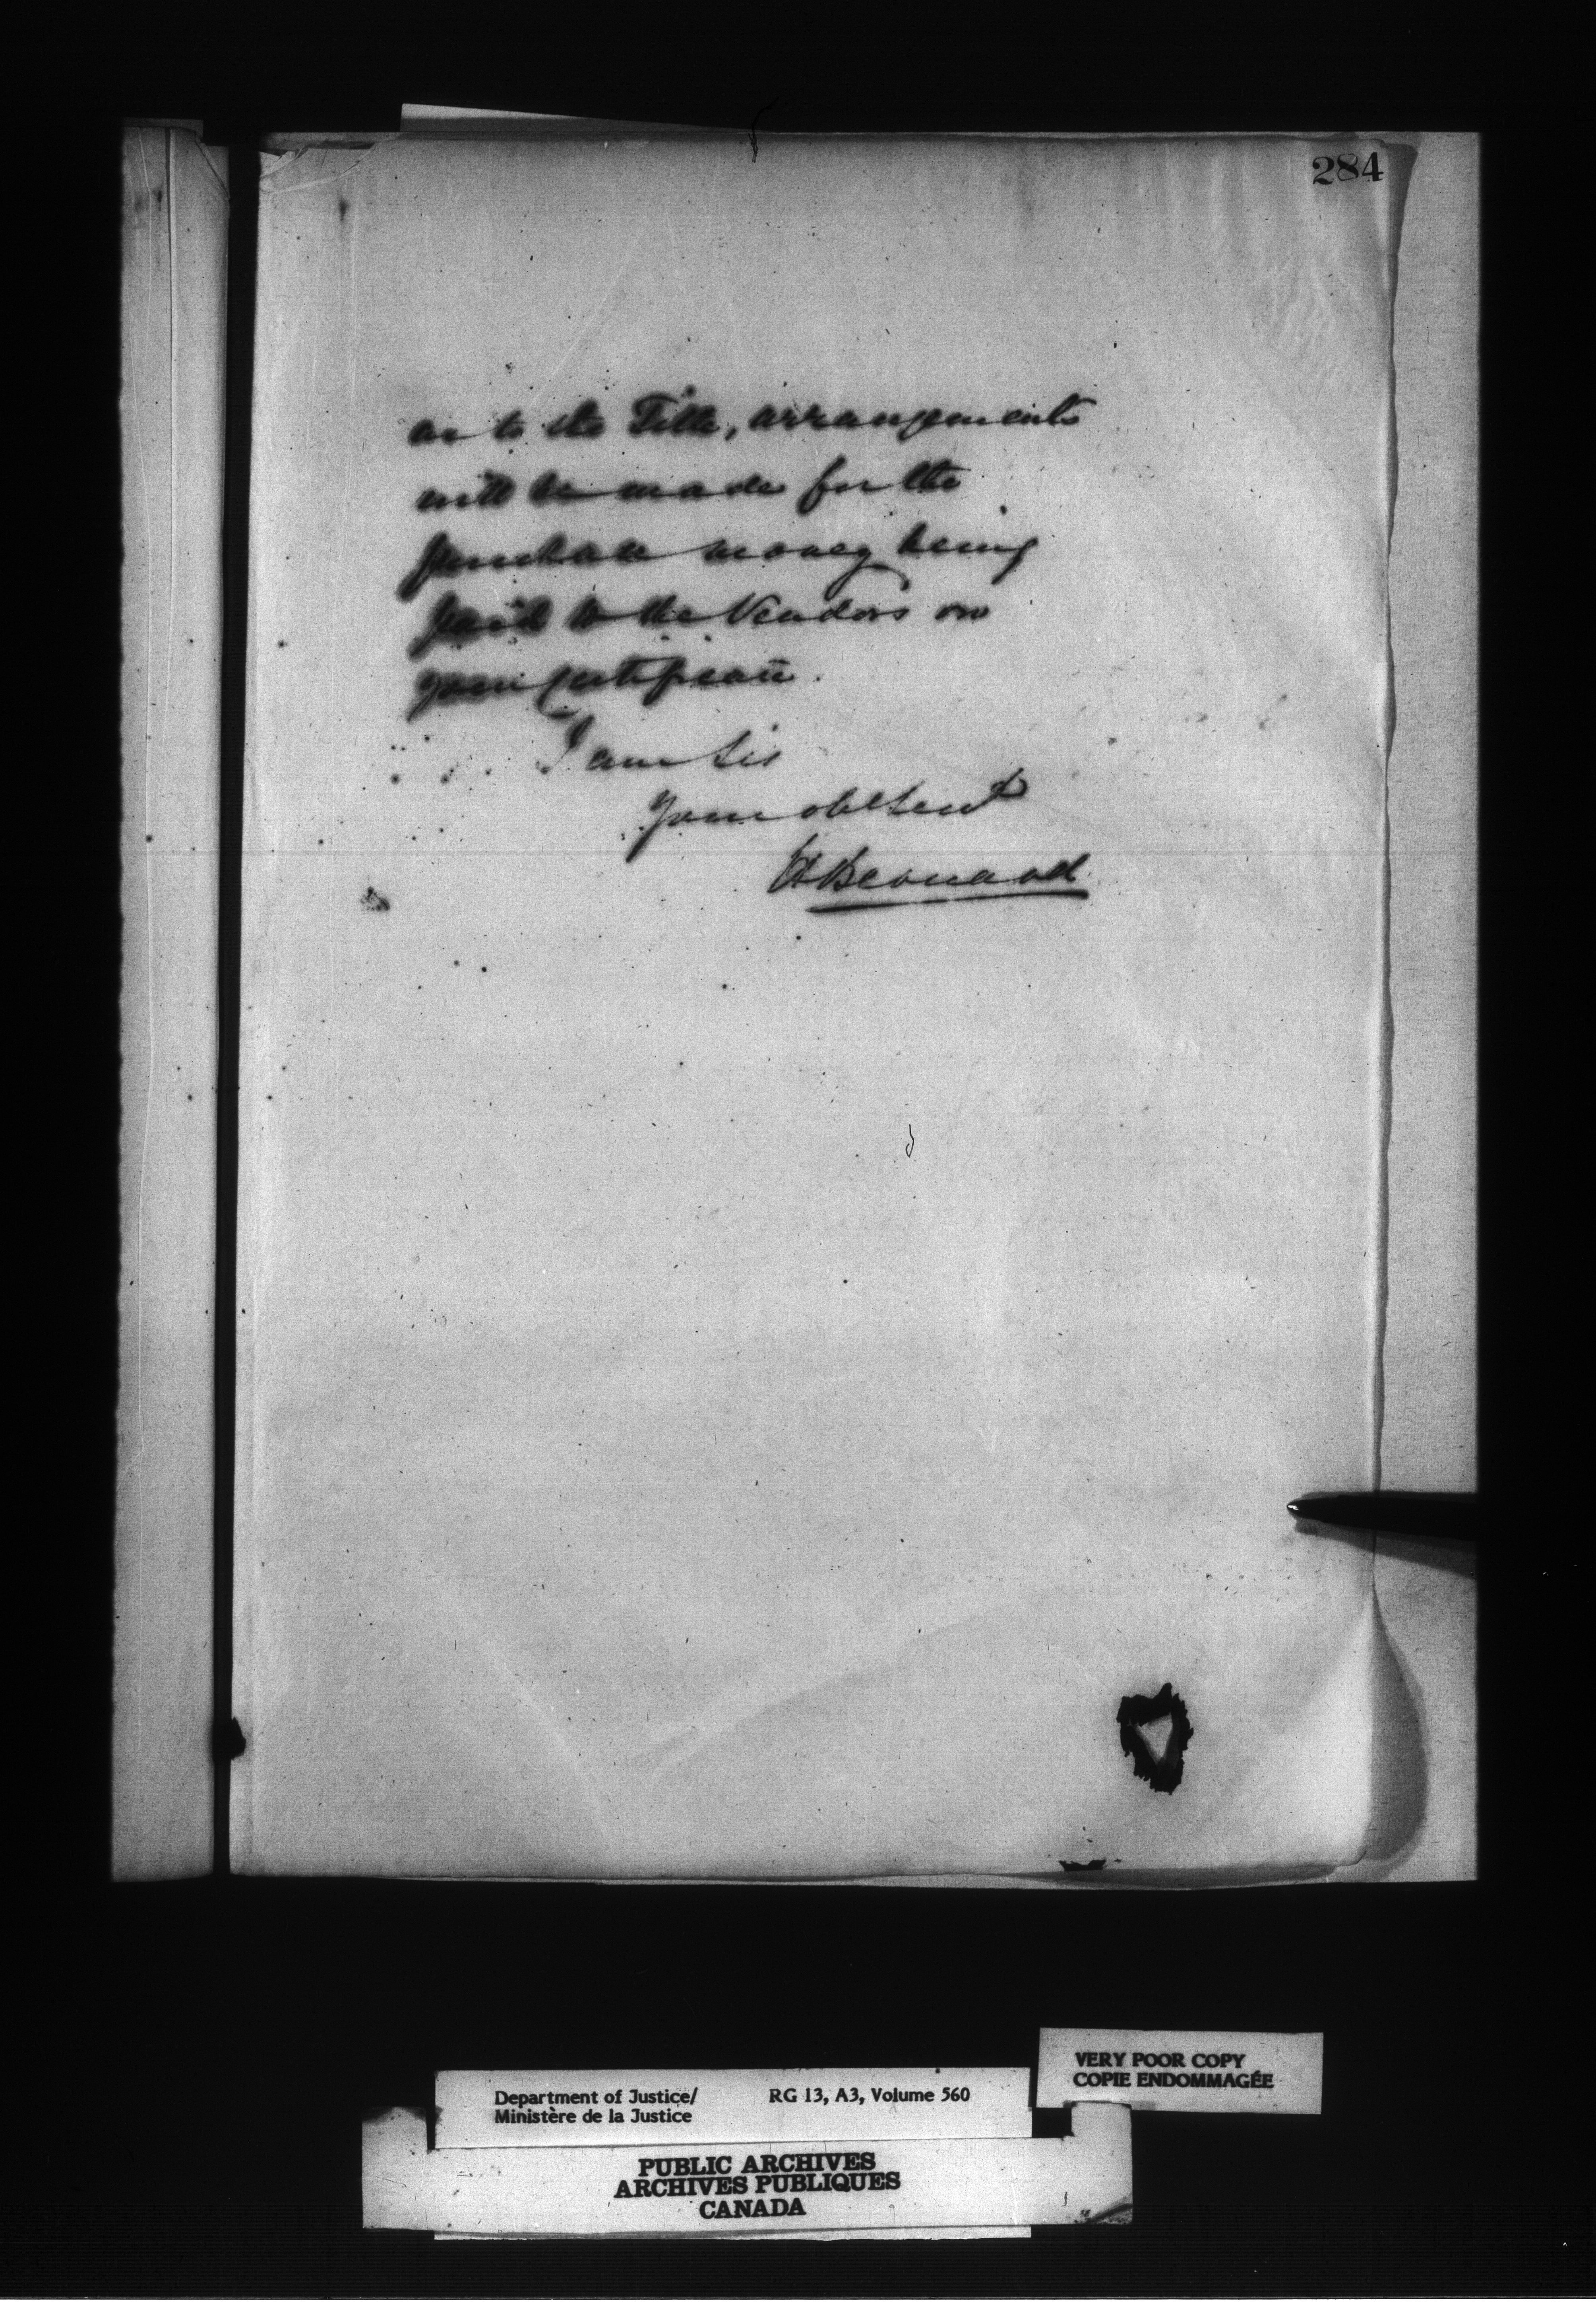 284
as to the Title, arrangements
will be made for the
purchase money being
paid to the Vendors on
your certificate.
I am Sir
Your obt Servt
H Bernard
VERY POOR COPY
COPIE ENDOMMAGÉE
Department of Justice/ RG 13, A3, Volume 560
Ministère de la Justice
PUBLIC ARCHIVES
ARCHIVES PUBLIQUES
CANADA